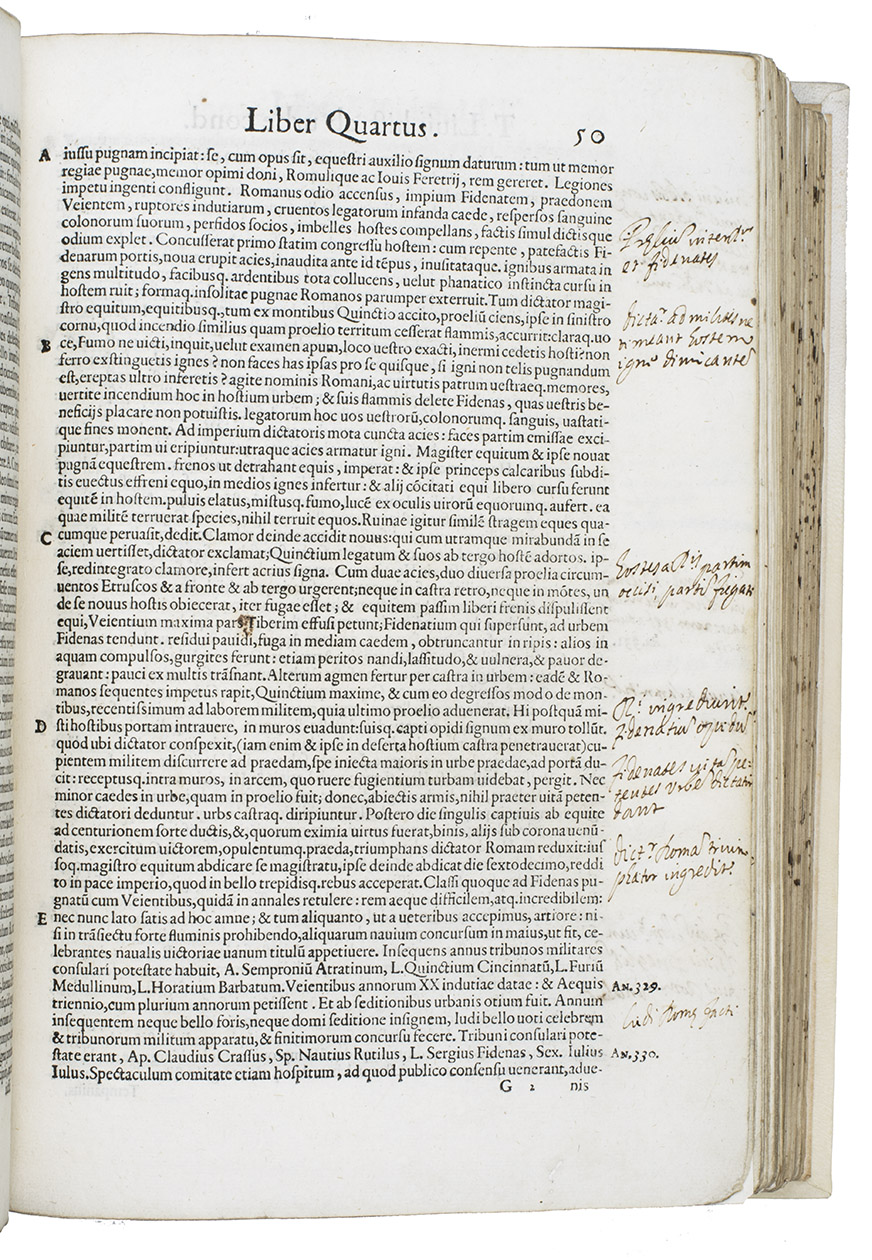 Liber Quartus. 50
A iussu pugnam incipiat: se, cum opus sit, equestri auxilio signum daturum: tum ut memor
regiae pugnae, memor opimi doni, Romulique ac Iouis Feretrij, rem gereret. Legiones
impetu ingenti confligunt. Romanus odio accensus, impium Fidenatem, praedonem
Veientem, ruptores indutiarum, cruentos legatorum infanda caede, respersos sanguine
colonorum suorum, perfidos socios, imbelles hostes compellans, factis simul dictisque
odium explet. Concusserat primo statim congressu hostem: cum repente, patefactis Fi-
denarum portis, noua erupit acies, inaudita ante id tēpus, inusitataque. ignibus armata in
gens multitudo, facibusq. ardentibus tota collucens, uelut phanatico instincta cursu in
hostem ruit; formaq. insolitae pugnae Romanos parumper exterruit. Tum dictator magi-
stro equitum, equitibusq., tum ex montibus Quinctio accito, proeliū ciens, ipse in sinistro
cornu, quod incendio similius quam proelio territum cesserat flammis, accurrit: claraq. uo
B ce, Fumo ne uicti, inquit, uelut examen apum, loco uestro exacti, inermi cedetis hosti? non
ferro exstinguetis ignes? non faces has ipsas pro se quisque, si igni non telis pugnandum
est, ereptas ultro inferetis? agite nominis Romani, ac uirtutis patrum uestraeq. memores,
uertite incendium hoc in hostium urbem; & suis flammis delete Fidenas, quas uestris be-
neficijs placare non potuistis. legatorum hoc uos uestrorū, colonorumq. sanguis, uastati-
que fines monent. Ad imperium dictatoris mota cuncta acies: faces partim emissae exci-
piuntur, partim ui eripiuntur: utraque acies armatur igni. Magister equitum & ipse nouat
pugnā equestrem. frenos ut detrahant equis, imperat: & ipse princeps calcaribus subdi-
tis euectus effreni equo, in medios ignes infertur: & alij cōcitati equi libero cursu ferunt
equitē in hostem. puluis elatus, mistusq. fumo, lucē ex oculis uirorū equorumq. aufert. ea
quae militē terruerat species, nihil terruit equos. Ruinae igitur similē stragem eques qua-
C cumque peruasit, dedit. Clamor deinde accidit nouus: qui cum utramque mirabundā in se
aciem uertisset, dictator exclamat; Quinctium legatum & suos ab tergo hostē adortos. ip-
se, redintegrato clamore, infert acrius signa. Cum duae acies, duo diuersa proelia circum-
uentos Etruscos & a fronte & ab tergo urgerent; neque in castra retro, neque in mōtes, un
de se nouus hostis obiecerat, iter fugae esset; & equitem passim liberi frenis dispulissent
equi, Veientium maxima pars Tiberim effusi petunt; Fidenatium qui supersunt, ad urbem
Fidenas tendunt. residui pauidi, fuga in mediam caedem, obtruncantur in ripis: alios in
aquam compulsos, gurgites ferunt: etiam peritos nandi, lassitudo, & uulnera, & pauor de-
grauant: pauci ex multis trāsnant. Alterum agmen fertur per castra in urbem: eadē & Ro-
manos sequentes impetus rapit, Quinctium maxime, & cum eo degressos modo de mon-
tibus, recentissimum ad laborem militem, quia ultimo proelio aduenerat. Hi postquā mi-
D sti hostibus portam intrauere, in muros euadunt: suisq. capti opidi signum ex muro tollūt.
quod ubi dictator conspexit, (iam enim & ipse in deserta hostium castra penetrauerat) cu-
pientem militem discurrere ad praedam, spe iniecta maioris in urbe praedae, ad portā du-
cit: receptusq. intra muros, in arcem, quo ruere fugientium turbam uidebat, pergit. Nec
minor caedes in urbe, quam in proelio fuit; donec, abiectis armis, nihil praeter uitā peten-
tes dictatori deduntur. urbs castraq. diripiuntur. Postero die singulis captiuis ab equite
ad centurionem sorte ductis, &, quorum eximia uirtus fuerat, binis, alijs sub corona uenū-
datis, exercitum uictorem, opulentumq. praeda, triumphans dictator Romam reduxit: ius
soq. magistro equitum abdicare se magistratu, ipse deinde abdicat die sextodecimo, reddi
to in pace imperio, quod in bello trepidisq. rebus acceperat. Classi quoque ad Fidenas pu-
gnatū cum Veientibus, quidā in annales retulere: rem aeque difficilem, atq. incredibilem:
E nec nunc lato satis ad hoc amne; & tum aliquanto, ut a ueteribus accepimus, artiore: ni-
si in trāsiectu forte fluminis prohibendo, aliquarum nauium concursum in maius, ut fit, ce-
lebrantes naualis uictoriae uanum titulū appetiuere. Insequens annus tribunos militares
consulari potestate habuit, A. Semproniū Atratinum, L. Quinctium Cincinnatū, L. Furiū
Medullinum, L. Horatium Barbatum. Veientibus annorum XX indutiae datae: & Aequis
triennio, cum plurium annorum petissent. Et ab seditionibus urbanis otium fuit. Annum
insequentem neque bello foris, neque domi seditione insignem, ludi bello uoti celebrem
& tribunorum militum apparatu, & finitimorum concursu fecere. Tribuni consulari pote-
state erant, Ap. Claudius Crassus, Sp. Nautius Rutilus, L. Sergius Fidenas, Sex. Iulius
Iulus. Spectaculum comitate etiam hospitum, ad quod publico consensu uenerant, adue-
G 2 nis
et fidenates
dictar ad milites ne
timeant hostem
igne dimicante
hostes a Ris partim
occisi, partī fugati
Fidenates uita pe-
tentes urbē dictatori
dant
AN.329.
ludi Romę facti
AN.330.